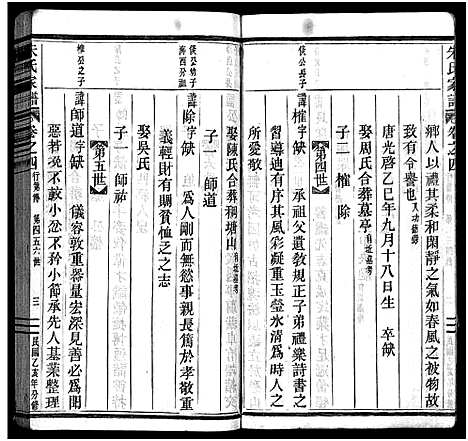 朱氏家譜 卷之四
鄉人以禮其柔和閑靜之氣如春風之被物故
致有令譽也
唐光啓乙巳年九月十八日生 卒缺
娶周氏合葬墓亭
子二 權 除
第四世
俟公長子
諱權 字缺 承祖父遺敎規正子弟禮樂詩書之
習導迪有序其風彩凝重玉瑩氷清爲時人之
所愛敬
娶陳氏合葬桐塘山
子一 師道
俟公幼子
諱除 字缺 爲人剛而無慾事親長篤於孝敬重
義輕財有賙貧恤乏之志
娶吳氏
子一 師祘
第五世
權公之子
師道 字缺 儀容敦重器量宏深見善必爲聞
惡若凂不較小忿不矜小節承先人基業整理
朱氏家譜 卷之四 行第傳 第四五六世 三 民國乙亥年分修